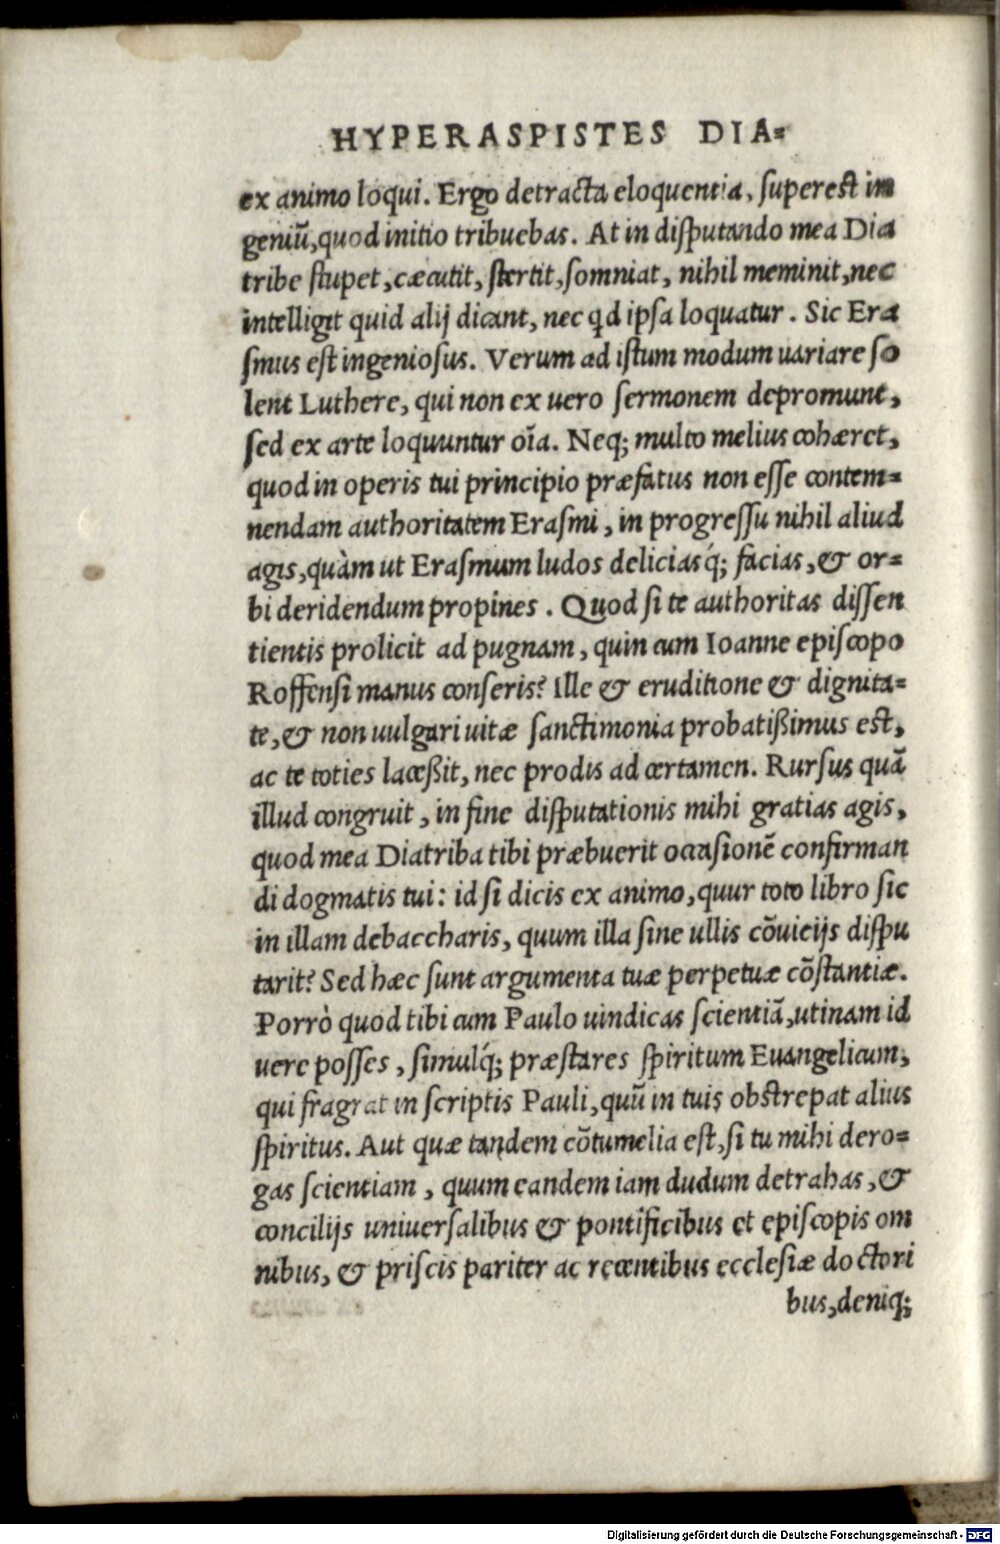 HYPERASPISTES DIA⸗
ex animo loqui. Ergo detracta eloquentia, ſupereſt in
geniũ,quod initio tribuebas. At in diſputando mea Dia
tribe ſtupet,cæcutit, ſtertit,ſomniat, nihil meminit,nec
intelligit quid alij dicant, nec qd ipſa loquatur. Sic Era
ſmus eſt ingenioſus. Verum ad iſtum modum uariare ſo
lent Luthere, qui non ex uero ſermonem depromunt,
ſed ex arte loquuntur oĩa. Neq; multo melius cohæret,
quod in operis tui principio præfatus non eſſe contem⸗
nendam authoritatem Eraſmi, in progreſſu nihil aliud
agis,quàm ut Eraſmum ludos deliciasq́; facias,& or⸗
bi deridendum propines. Quod ſi te authoritas diſſen
tientis prolicit ad pugnam, quin cum Ioanne epiſcopo
Roffenſi manus conſeris? Ille & eruditione & dignita⸗
te,& non uulgari uitæ ſanctimonia probatißimus eſt,
ac te toties laceßit, nec prodis ad certamen. Rurſus quã
illud congruit, in fine diſputationis mihi gratias agis,
quod mea Diatriba tibi præbuerit occaſionẽ confirman
di dogmatis tui: id ſi dicis ex animo,quur toto libro ſic
in illam debaccharis, quum illa ſine ullis cõuicijs diſpu
tarit? Sed hæc ſunt argumenta tuæ perpetuæ cõſtantiæ.
Porrò quod tibi cum Paulo uindicas ſcientiã,utinam id
uere poſſes, ſimulq́; præſtares ſpiritum Euangelicum,
qui fragrat in ſcriptis Pauli,quũ in tuis obſtrepat alius
ſpiritus. Aut quæ tandem cõtumelia eſt,ſi tu mihi dero⸗
gas ſcientiam, quum eandem iam dudum detrahas,&
concilijs uniuerſalibus & pontificibus et epiſcopis om
nibus, & priſcis pariter ac recentibus eccleſiæ doctori
bus,deniq;
Digitalisierung gefördert durch die Deutsche Forschungsgemeinschaft - DFG